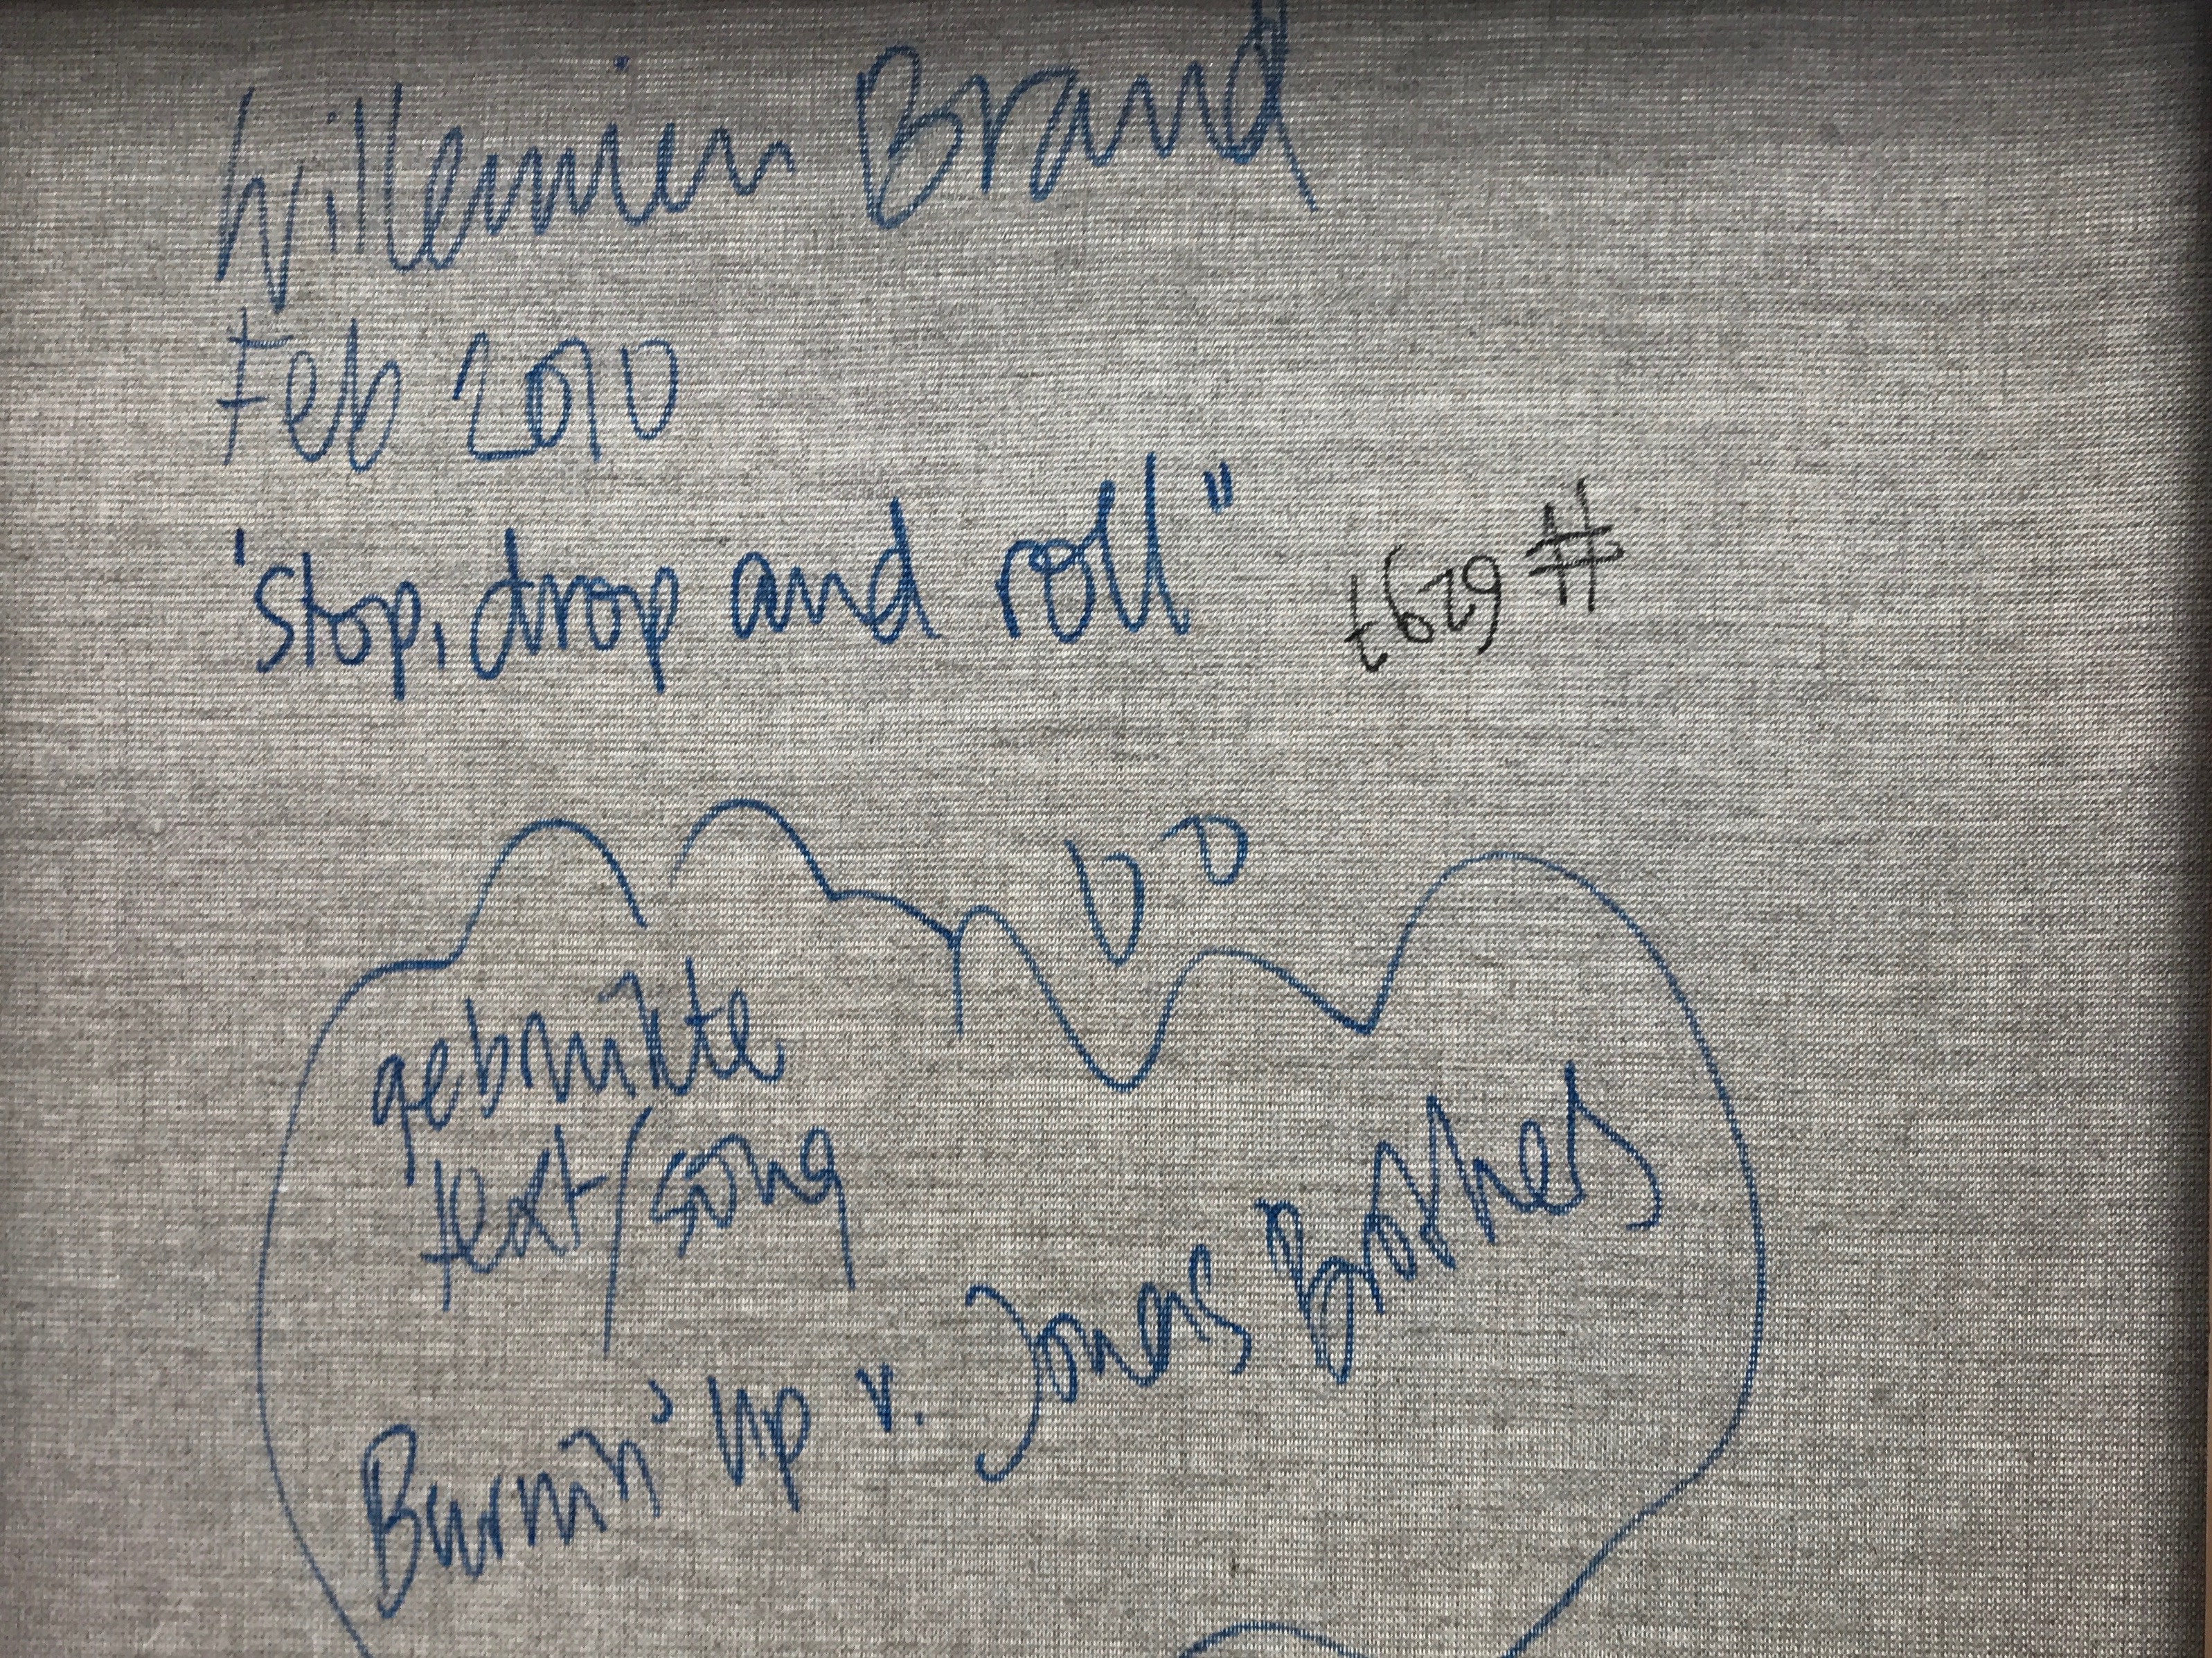 Willemien Brand
Feb 2010
'stop, drop and roll"
gebruikte
text/song
Burnin' up v. Jonas Brothers